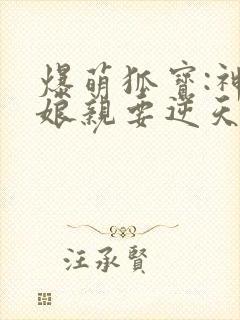 爆萌狐寶:神
娘親要逆天
汪承賢